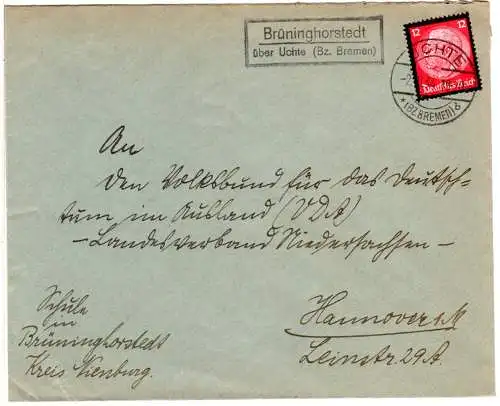 Brüninghorstedt
über Uchte (Bz. Bremen)
12 12
Deutsches Reich
UCHTE
* (BZ. BREMEN) d
An
den Volksbund für das Deutsch-
tum im Ausland (VDA)
- Landesverband Niedersachsen -
Hannover
Leinstr. 29A.
Schule
in
Brüninghorstedt
Kreis Nienburg.